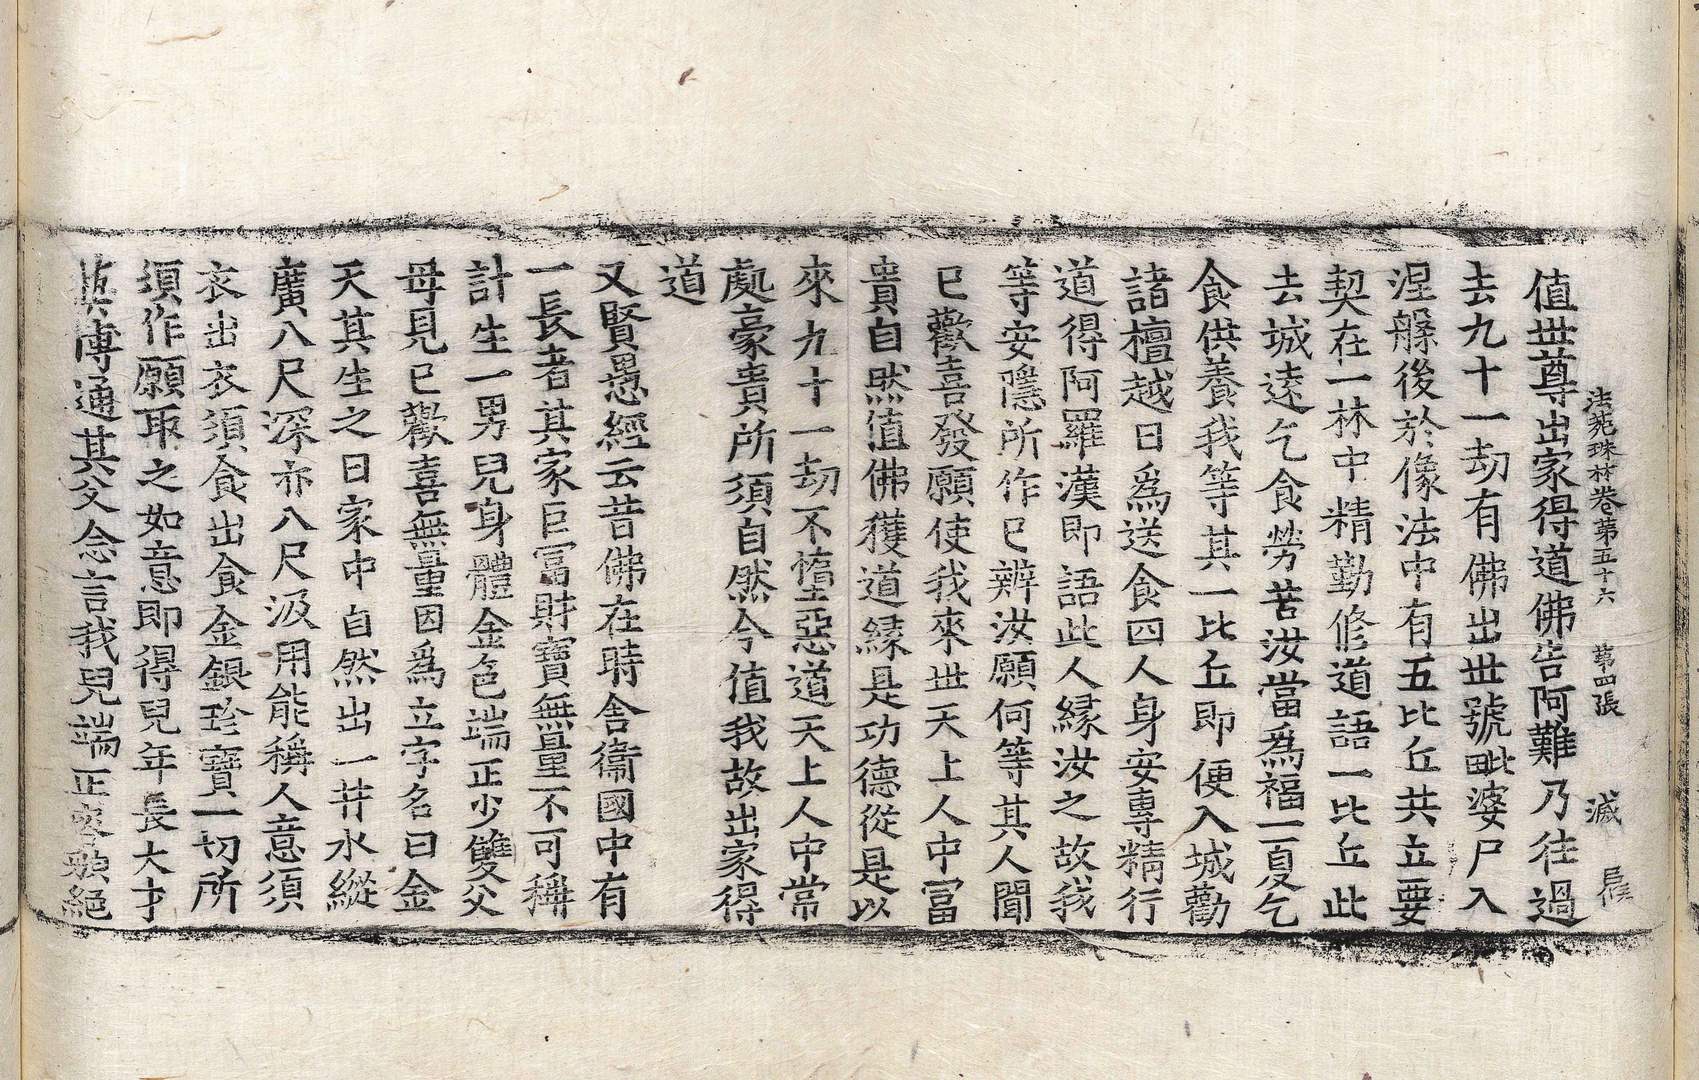 法苑珠林卷第五十六 第四張 滅
值世尊出家得道佛告阿難乃往過
去九十一劫有佛出世號毗婆尸入
涅槃後於像法中有五比丘共立要
契在一林中精勤修道語一比丘此
去城遠乞食勞苦汝當為福一夏乞
食供養我等其一比丘即便入城勸
諸檀越日為送食四人身安專精行
道得阿羅漢即語此人緣汝之故我
等安隱所作已辨汝願何等其人聞
已歡喜發願使我來世天上人中富
貴自然值佛獲道緣是功德從是以
來九十一劫不墮惡道天上人中常
處豪貴所須自然今值我故出家得
道
又賢愚經云昔佛在時舍衛國中有
一長者其家巨富財寶無量不可稱
計生一男兒身體金色端正少雙父
母見已歡喜無量因為立字名曰金
天其生之日家中自然出一井水縱
廣八尺深亦八尺汲用能稱人意須
衣出衣須食出食金銀珍寶一切所
須作願取之如意即得兒年長大才
藝博通其父念言我兒端正容貌絕